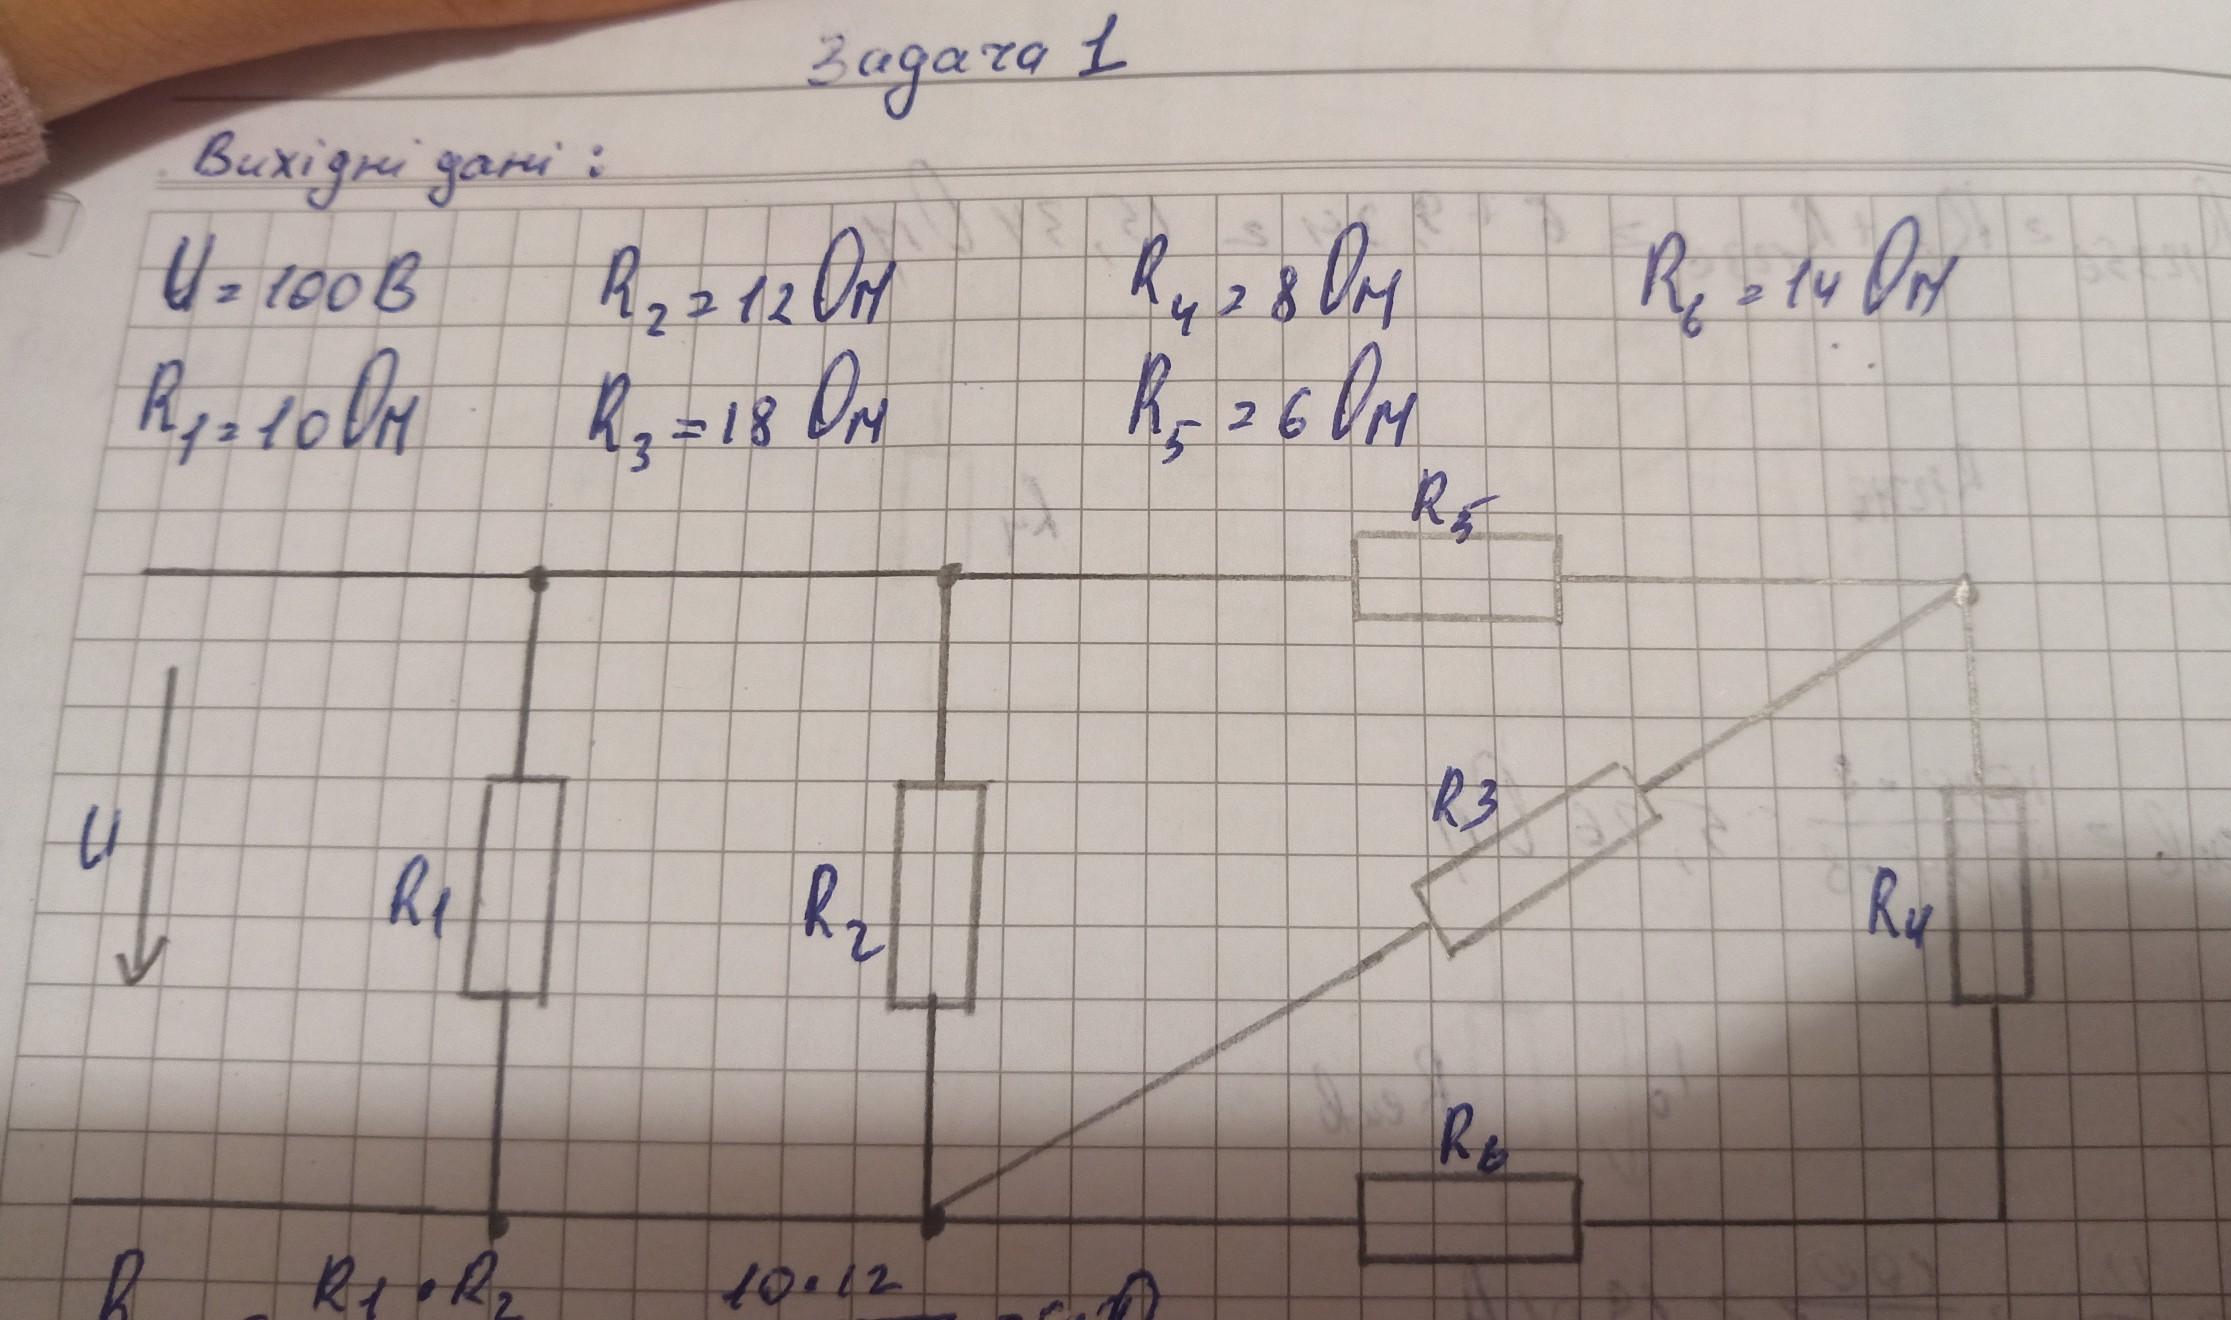 Задача 1
Вихідні дані:
U = 100 В R2 = 12 Ом R4 = 8 Ом R6 = 14 Ом
R1 = 10 Ом R3 = 18 Ом R5 = 6 Ом
R5
U
R1
R2
R3
R4
R6
R1 · R2 10 · 12
R =